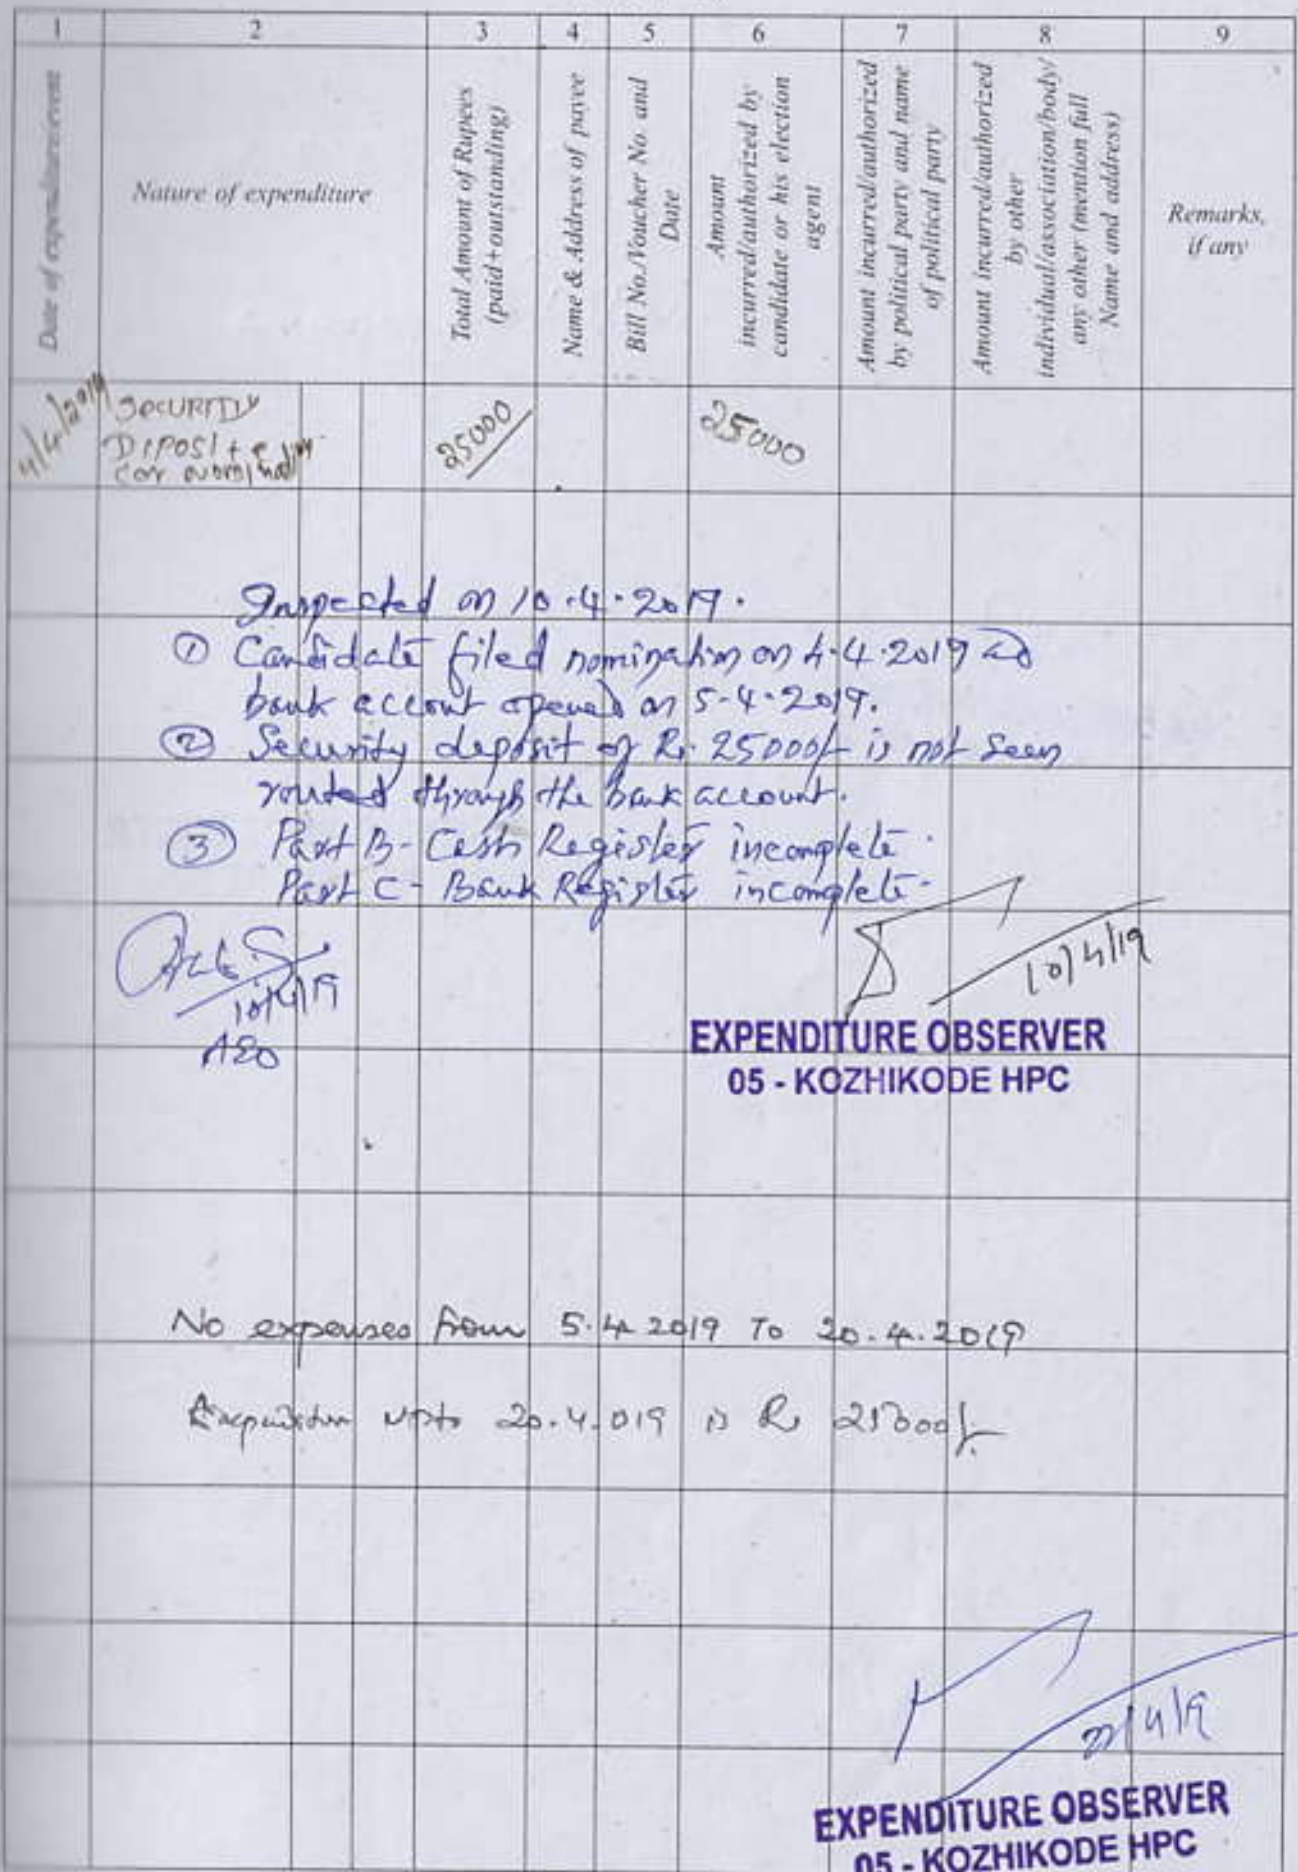 1 2 3 4 5 6 7 8 9
Date of expenditure/event
Nature of expenditure
Total Amount of Rupees
(paid+outstanding)
Name & Address of payee
Bill No./Voucher No. and
Date
Amount
incurred/authorized by
candidate or his election
agent
Amount incurred/authorized
by political party and name
of political party
Amount incurred/authorized
by other
individual/association/body/
any other (mention full
Name and address)
Remarks,
if any
4/4/2019 SECURITY 25000 25000
Deposit
Inspected on 10.4.2019.
① Candidate filed nomination on 4.4.2019 and
bank account opened on 5.4.2019.
② Security deposit of Rs. 25000/- is not seen
routed through the bank account.
③ Part B - Cash Register incomplete.
Part C - Bank Register incomplete.
10/4/19
10/4/19
AEO
EXPENDITURE OBSERVER
05 - KOZHIKODE HPC
No expenses from 5.4.2019 To 20.4.2019
Expenditure upto 20.4.019 is Rs 25000/-
EXPENDITURE OBSERVER
05 - KOZHIKODE HPC